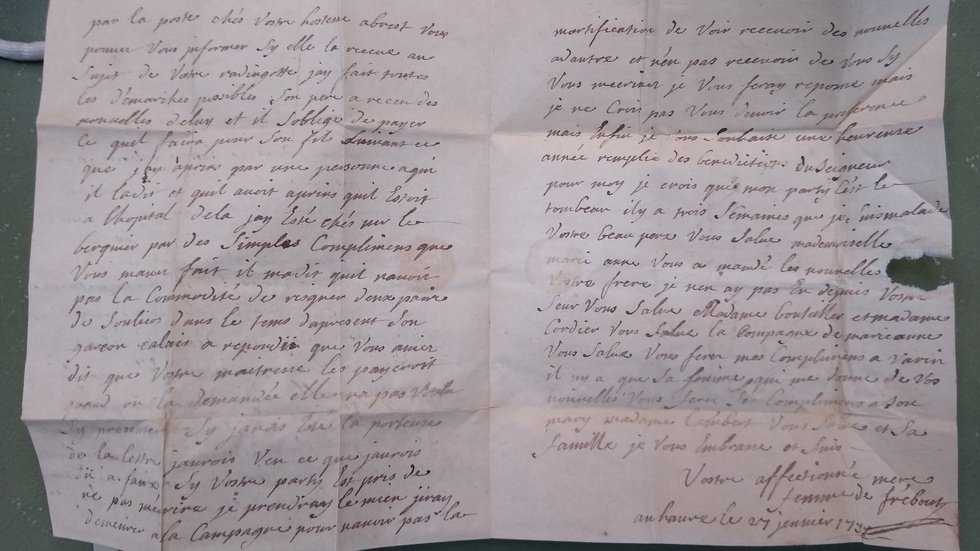 par la poste chés Vostre hostesse abrest Vous
pouvez Vous informer Sy elle la receue au
Sujet de Votre radingotte jay fait toutes
les démarches possibles Son pere a receu des
nouvelles deluy et il Soblige de payer
ce quil faira pour Son fils Suivant ce
que jay apries par une personne aqui
il ladit et quil avoit apries quil Estoit
a lhopital dela jay Esté chés mr le
berquier par des Simples Complimens que
Vous mavez fait il madit quil navoit
pas la Commodité de risquer deux paire
de Souliers dans le tems dapresent Son
garcon calais a repondu que Vous aviez
dit que Vostre maitresse les payeroit
quand on la demandée elle na pas Voulu
Sy presenter Sy javais Esté la porteuse
de la lettre jaurois Veu ce que jaurois
a faire Sy Vostre party Est pris de
ne pas mecrire je prendray le mien jiray
demeurer a la Campagne pour navoir pas la
mortification de Voir recevoir des nouvelles
adautre et nen pas recevoir de Vous Sy
Vous mecrivez je Vous feray reponse mais
je ne Crois pas Vous devoir la preference
mais Enfin je Vous Souhaise une heureuse
année remplie des benedictions du Seigneur
pour moy je crois que mon party Est le
tombeau il y a trois Semaines que je suis malade
Vostre beau pere Vous Salue mademoiselle
marie anne Vous a mandé les nouvelles
Vostre frere je nen ay pas Eu depuis Vostre
Seur Vous Salue Madame et madame
Cordier Vous Salue la Compagne de marianne
Vous Salue Vous ferez mes Complimens a Varin
il ny a que Sa femme qui me donne de Vos
nouvelles Vous ferez Ses Complimens a Son
mary madame Lambert Vous Salue et Sa
famille je Vous Embrasse et Suis
Vostre affectionné mere
femme de frébourg
au havre le 27 jenvier 17